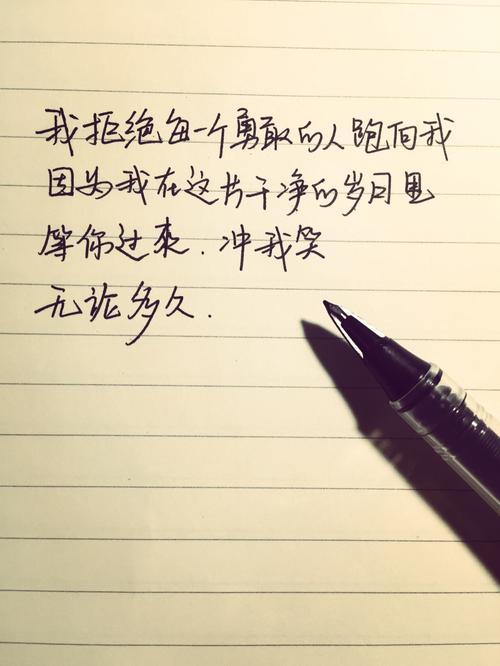 我拒绝每一个勇敢的人跑向我
因为我在这片干净的岁月里
等你过来.冲我笑
无论多久.